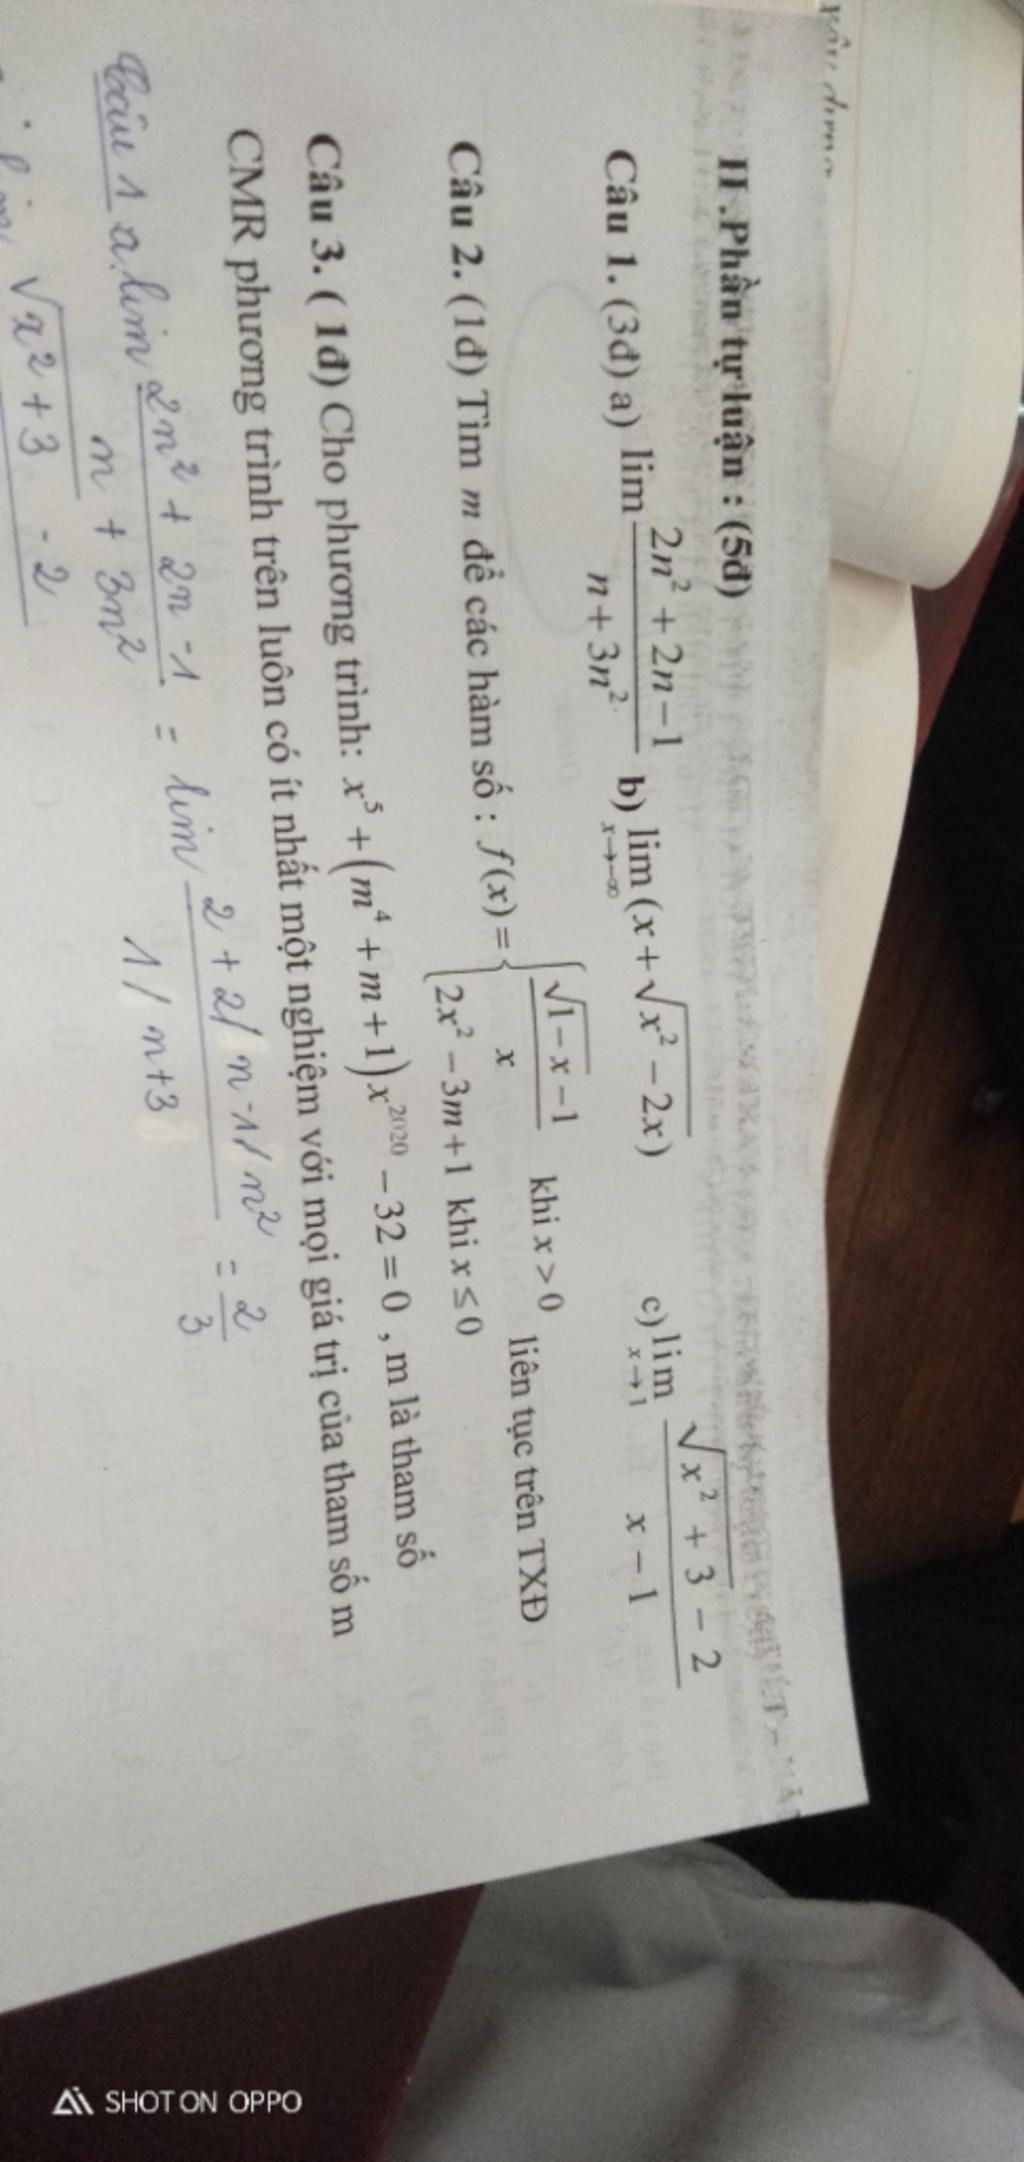 II.Phần tự luận : (5đ)
Câu 1. (3đ) a) lim (2n² + 2n − 1)/(n + 3n²) b) lim x→−∞ (x + √(x² − 2x)) c) lim x→1 (√(x² + 3) − 2)/(x − 1)
Câu 2. (1đ) Tìm m để các hàm số : f(x) = { (√(1 − x) − 1)/x khi x > 0
2x² − 3m + 1 khi x ≤ 0 liên tục trên TXĐ
Câu 3. ( 1đ) Cho phương trình: x⁵ + (m⁴ + m + 1)x²⁰²⁰ − 32 = 0 , m là tham số
CMR phương trình trên luôn có ít nhất một nghiệm với mọi giá trị của tham số m
Câu 1 a. lim (2n² + 2n − 1)/(n + 3n²) = lim (2 + 2/n − 1/n²)/(1/n + 3) = 2/3
lim √(x² + 3) − 2
SHOT ON OPPO